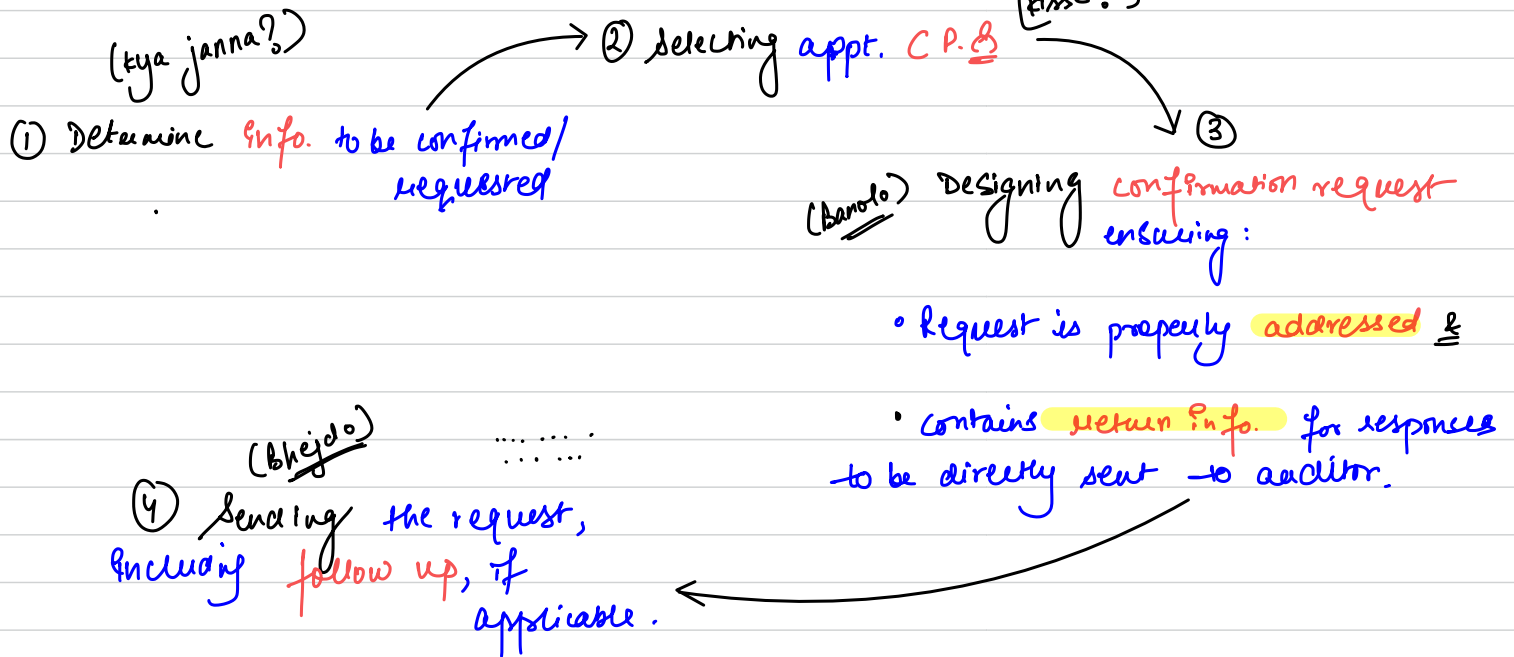 (kya janna?)
① Determine info. to be confirmed/
requested
② Selecting appt. C P. &
③
(Banalo) Designing confirmation request
ensuring:
• Request is properly addressed &
• contains return info. for responses
to be directly sent to auditor.
(Bhejdo)
④ Sending the request,
including follow up, if
applicable.